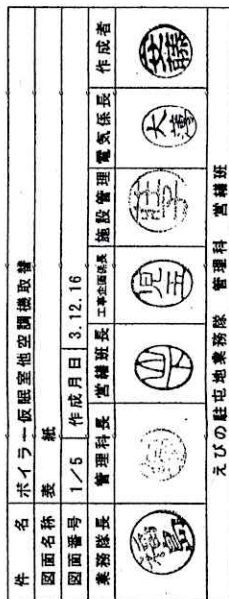 件 名 ボイラー仮眠室他空調機取替
図面名称 表 紙
図面番号 1/5 作成月日 3.12.16
業務隊長 管理科長 営繕班長 工事企画係長 施設管理 電気係長 作成者
山下 児玉 大薄
えびの駐屯地業務隊 管理科 営繕班